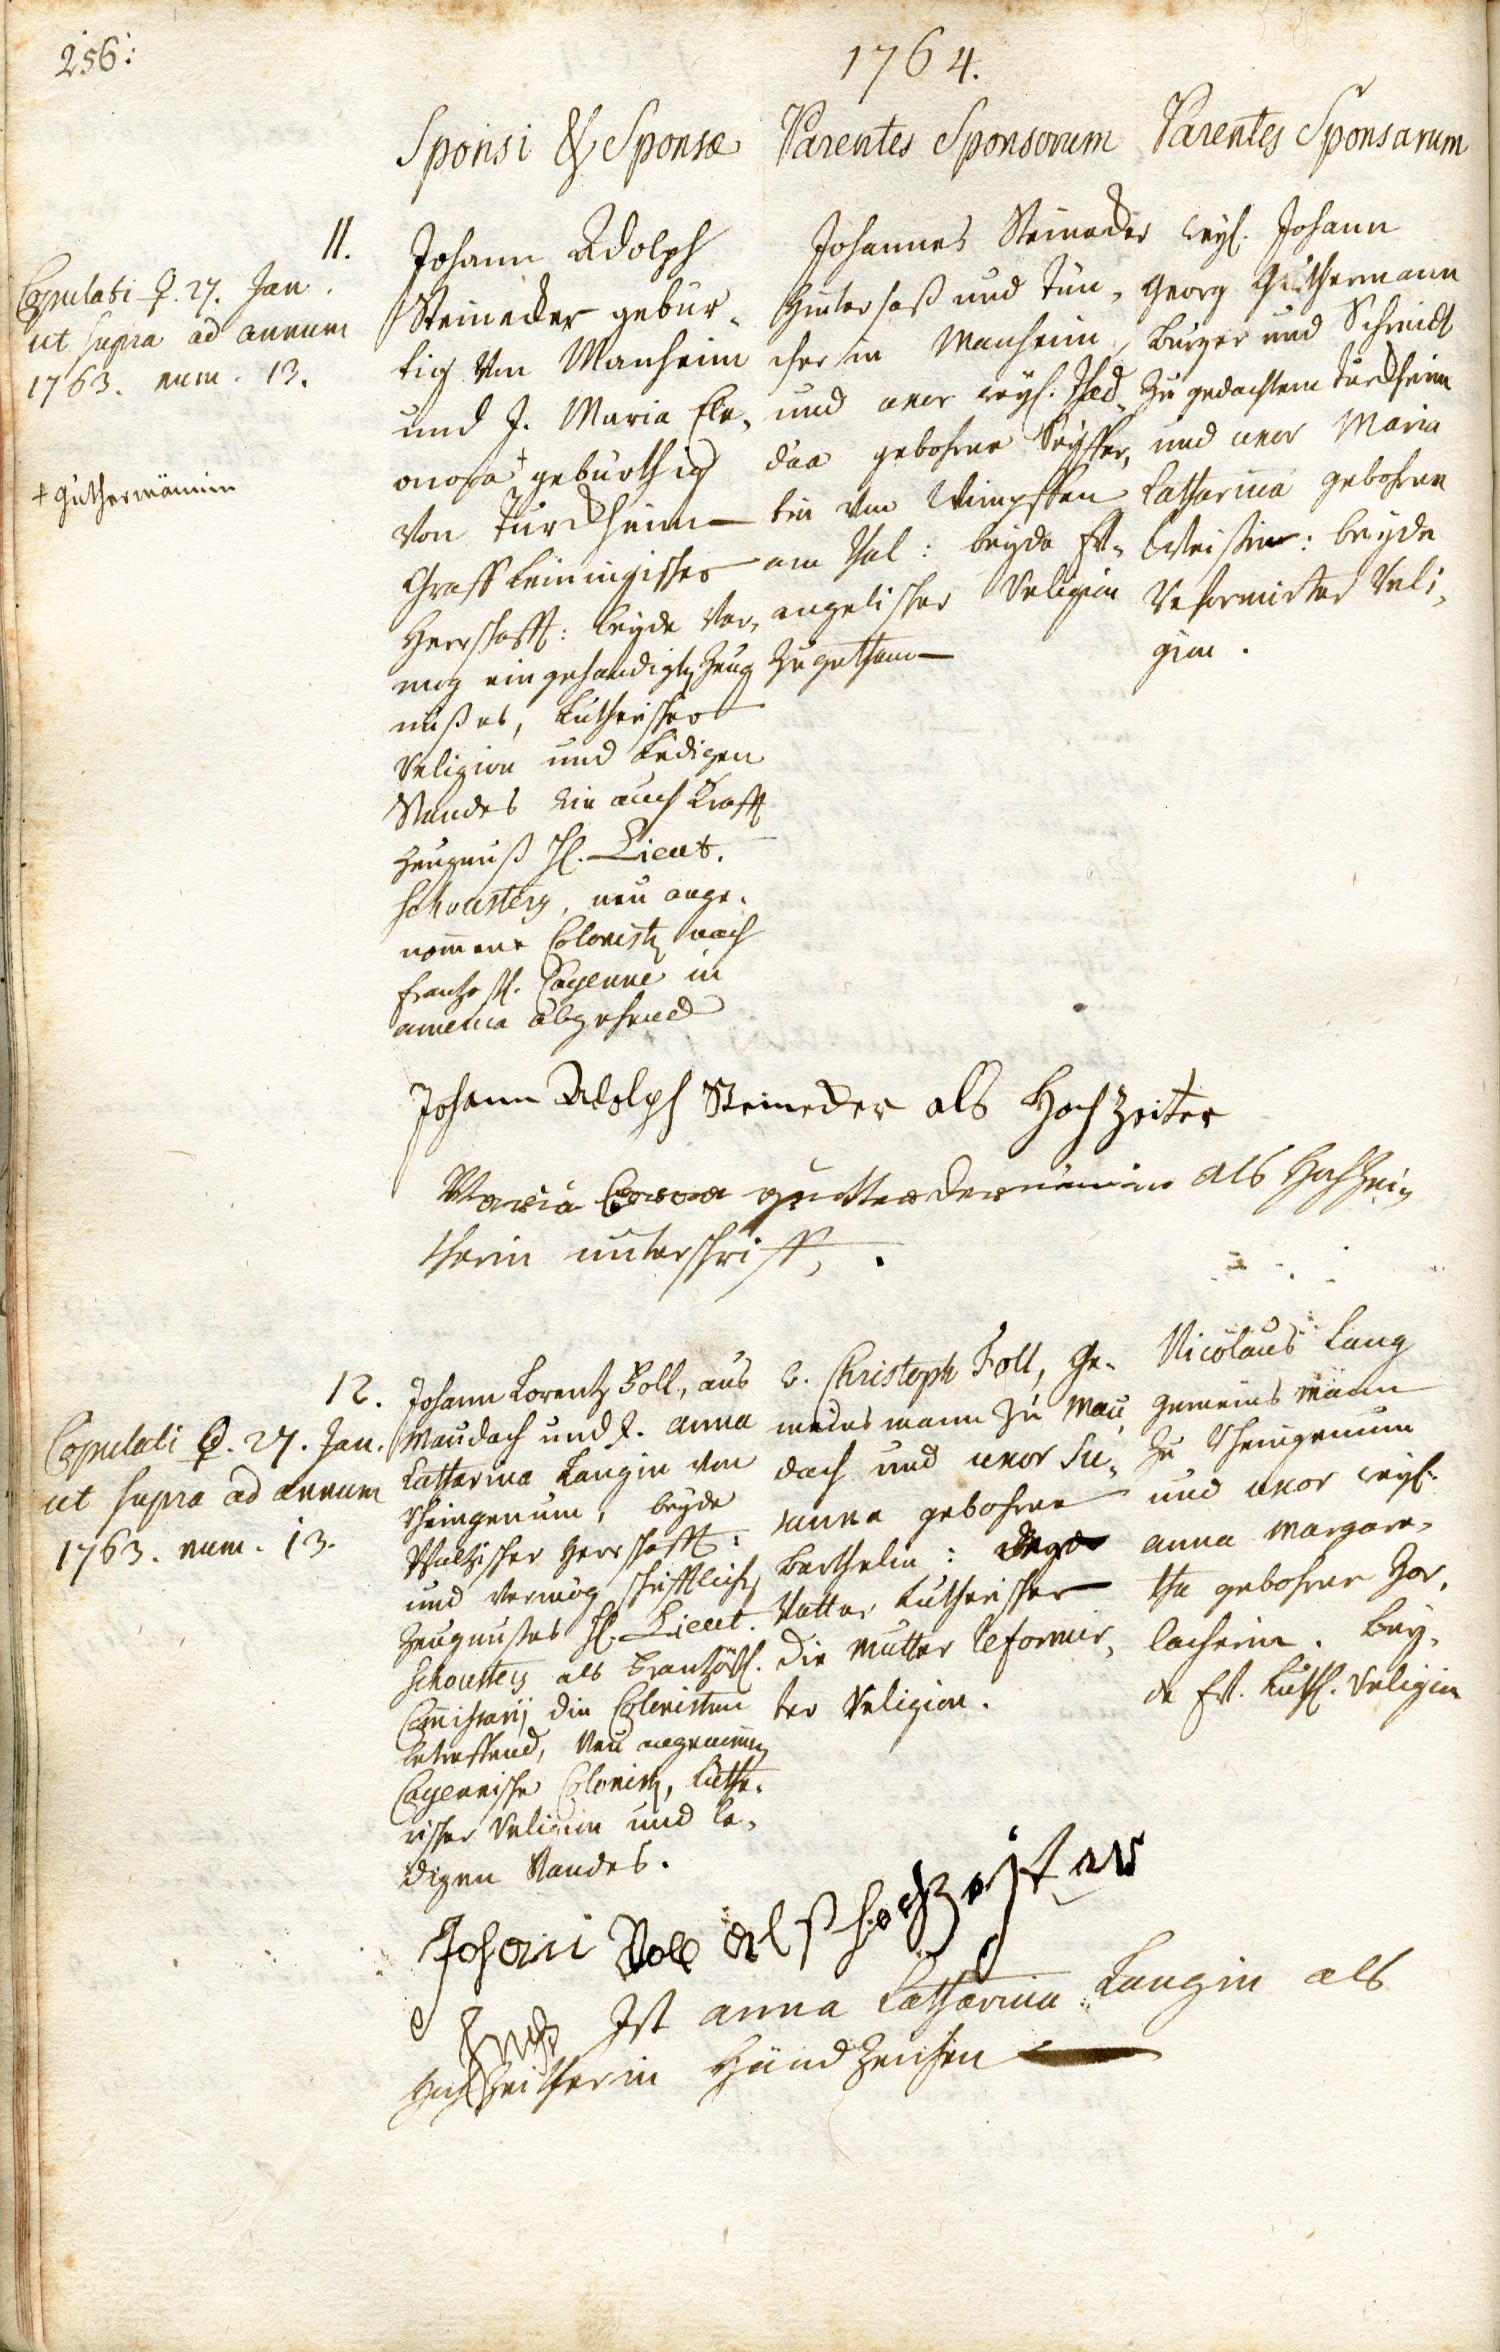 256.
1764.
Sponsi & Sponsæ
Parentes Sponsorum
Parentes Sponsarum
11.
Copulati ♀. 27. Jan.
ut supra ad annum
1763. num. 13.
† Guthermännin
Johann Adolph
Steineder gebür-
tig von Manheim
und J. Maria Ele-
onora † gebürthig
von Türckheim
Graff Leiningischer
Herrschafft: beyde ver-
mög eingehändigten Zeug
nißes, Lutherischer
Religion und Ledigen
Standes wie auch Krafft
Zeugnuß H. Lieut.
Schousters, neu ange-
nommene Colonisten nach
Frantzösch. Cayenne in
america abgehend
Johannes Steineder
Hintersaß und Tün-
cher in Manheim,
und uxor weyl. Thad-
däa gebohrne Seyffer-
tin von Wimpffen
am Thal: beyde Ev-
angelischer Religion
zugethan
weyl. Johann
Georg Guthermann
Burger und Schmidt
zu gedachtem Türckheim
und uxor Maria
Catharina gebohrne
Weißin: beyde
Reformirter Reli-
gion.
Johann Adolph Steineder als Hochzeiter
Maria als Hochzei-
therin unterschrifft.
12.
Copulati ♀. 27. Jan.
ut supra ad annum
1763. num. 13.
Johann Lorentz Foll, aus
Maudach und J. anna
Catharina Langin von
Rheingenum, beyde
Pfaltzischer Herrschafft:
und vermög schrifftlichen
Zeugnußes H. Lieut.
Schousters als Frantzösch.
Comissarij die Colonisten
betreffend, Neu angenommene
Cayennische Colonisten, Luthe-
rischer Religion und le-
digen Standes.
v. Christoph Foll, Ge-
meinsmann zu Mau-
dach und uxor Su-
sanna gebohrne
Barthelin:
Vatter Lutherischer
die Mutter Reformir-
ter Religion.
Nicolaus Lang
gemeinsmann
zu Rheingenum
und uxor weyl.
anna Margare-
tha gebohrne Gor-
lacherin. Bey-
de Ev. Luth. Religion
Johani Voll als hochzeiter
Ist anna Catharina Langin als
Hochzeitherin Handzeichen